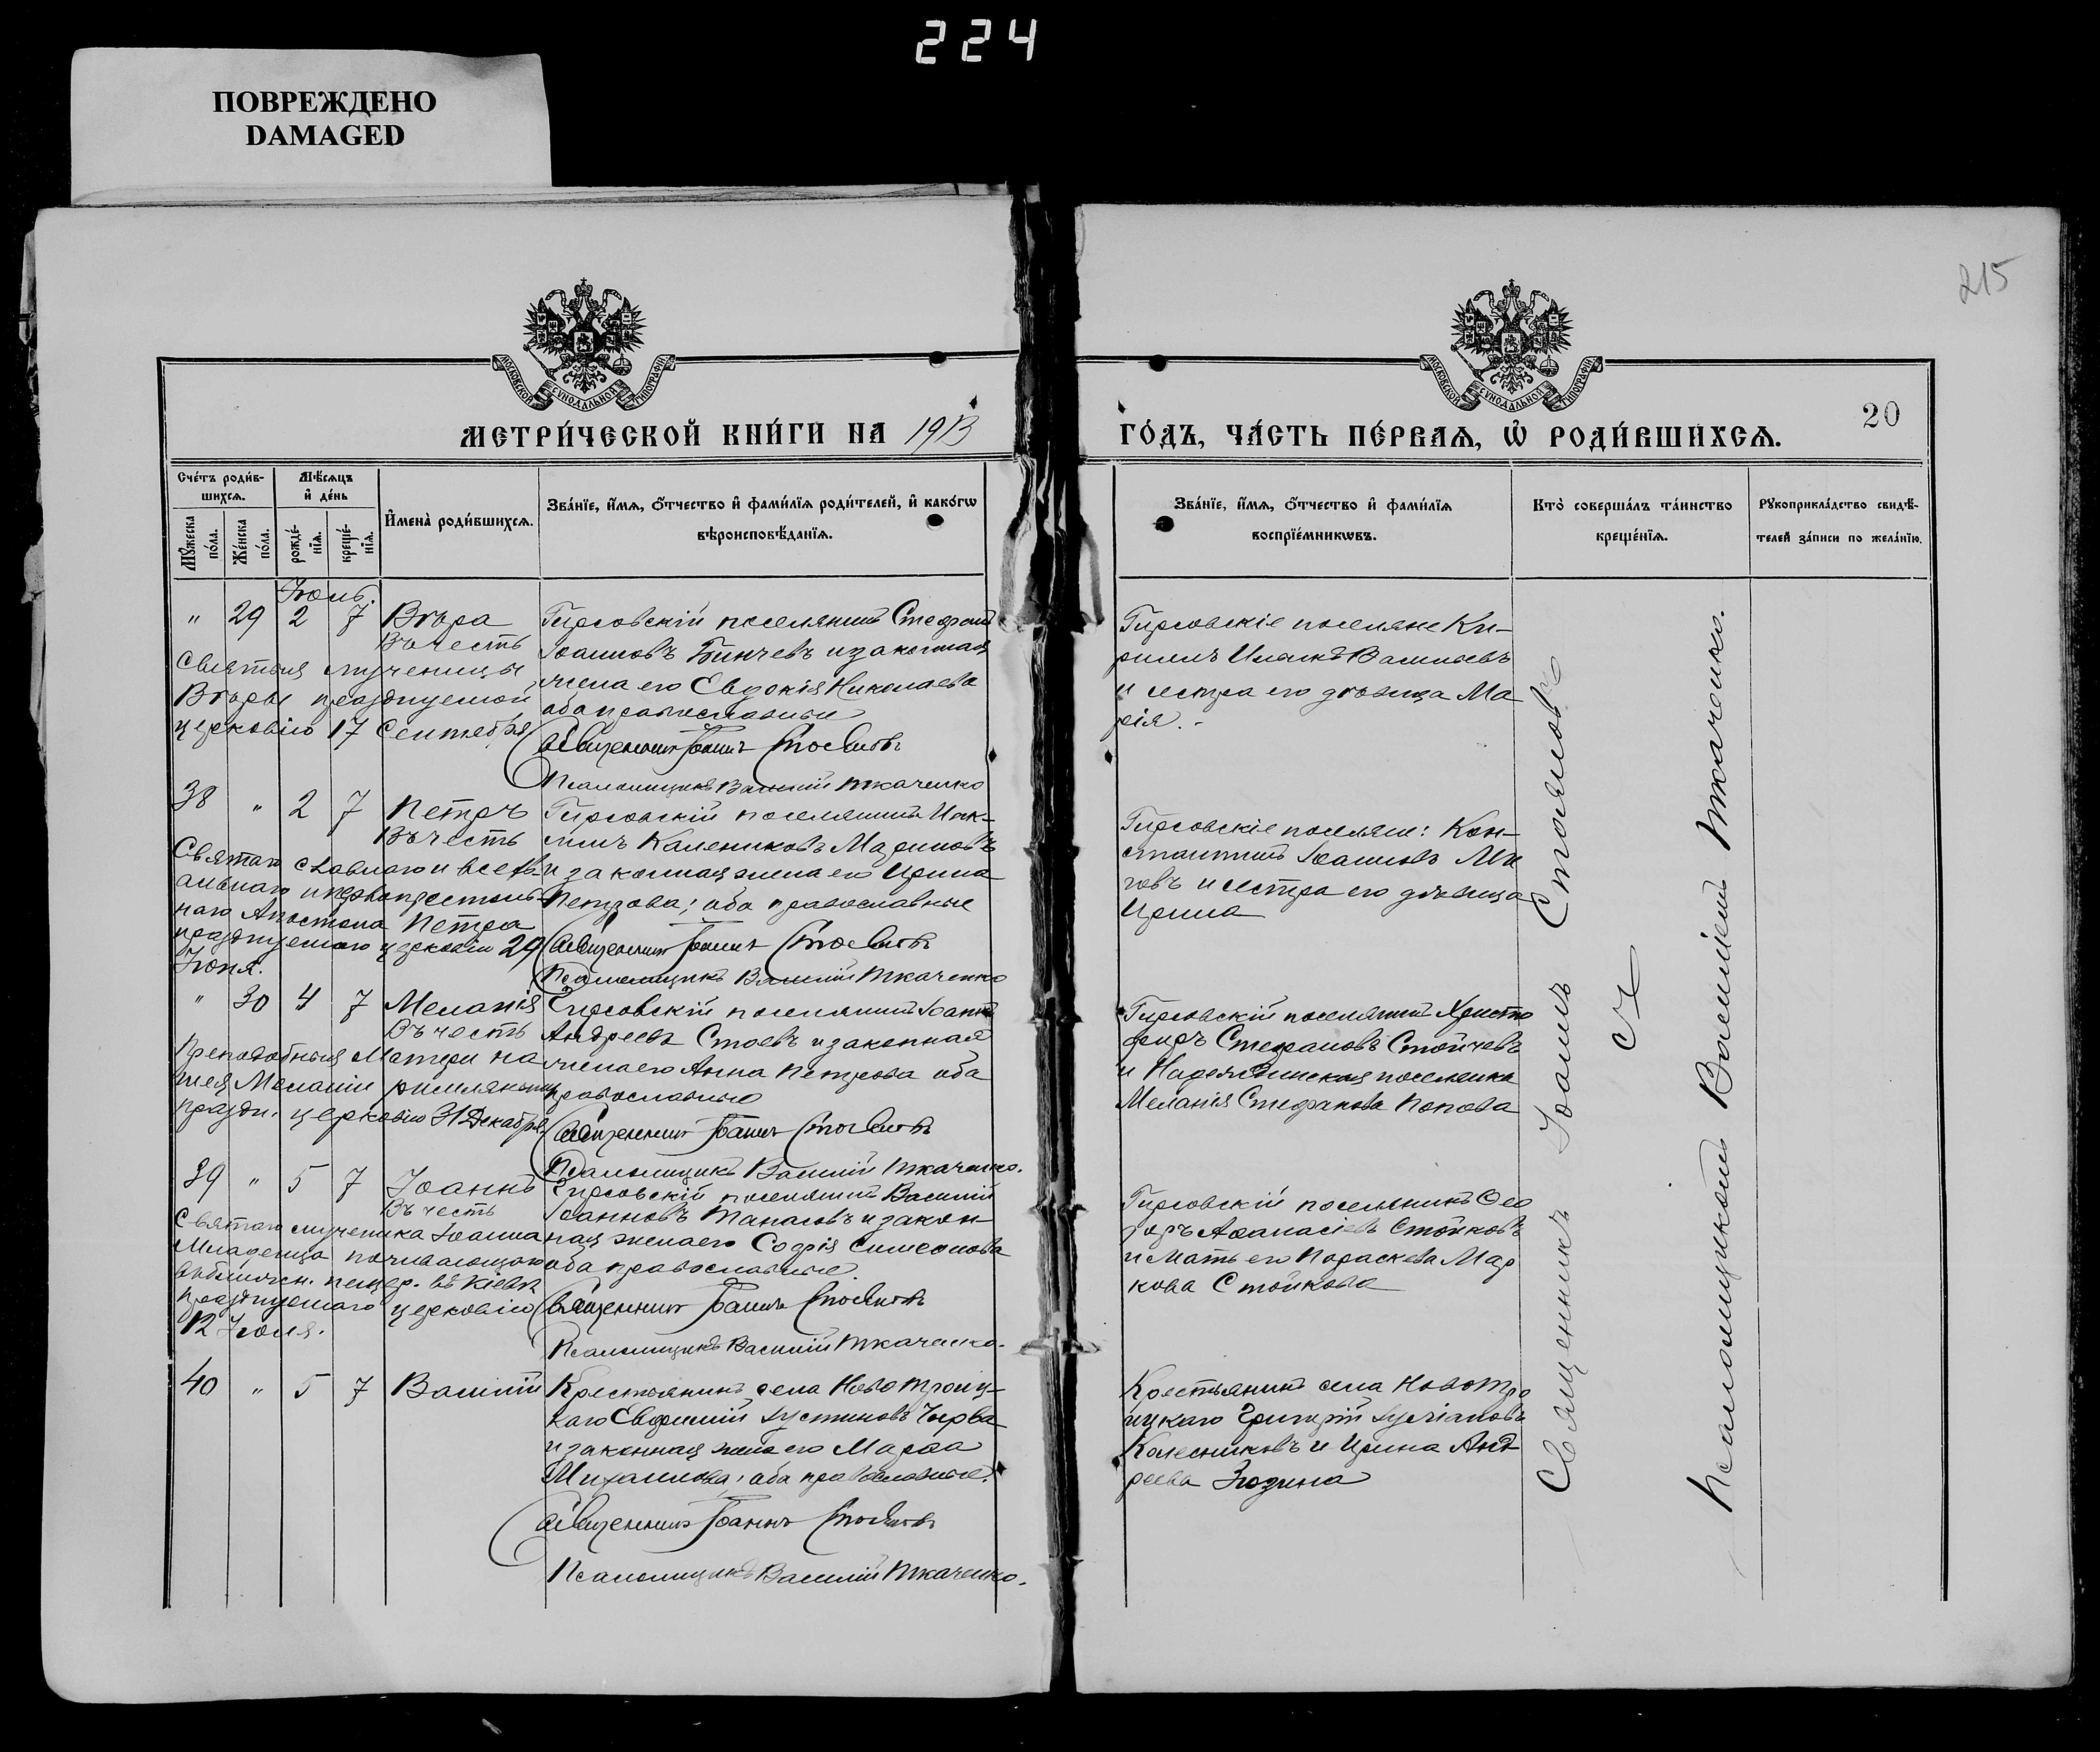 224
ПОВРЕЖДЕНО
DAMAGED
215
МОСКОВСКОЙ СУНОДАЛЬНОЙ ТИПОГРАФІИ
МОСКОВСКОЙ СУНОДАЛЬНОЙ ТИПОГРАФІИ
МЕТРИ́ЧЕСКОЙ КНИ́ГИ НА 1913
ГО́ДЪ, ЧА́СТЬ ПЕ́РВАЯ, Ѡ҆ РОДИ́ВШИХСЯ.
20
Сче́тъ роди́в-
шихся.
Мѣ́сяцъ
и҆ де́нь
Мꙋ́жеска
по́ла.
Же́нска
по́ла.
рожде́-
нїя.
креще́-
нїя.
И҆мена̀ роди́вшихся.
Зва́нїе, и҆́мя, ѻ҆́тчество и҆ фами́лїя роди́телей, и҆ како́гѡ
вѣроисповѣ́данїя.
Зва́нїе, и҆́мя, ѻ҆́тчество и҆ фами́лїя
воспрїе́мникѡвъ.
Кто̀ соверша́лъ та́инство
креще́нїя.
Рꙋкоприкла́дство свидѣ́-
телей за́писи по жела́нїю.
Іюль.
" 29 2 7 Вѣра
Въ честь
Святыя мученицы
Вѣры празднуемой
церковію 17 Сентября
Гирсовскій поселянинъ Стефанъ
Іоанновъ Бинчевъ и законная
жена его Евдокія Николаева
оба православные
Священникъ Іоаннъ Стояновъ
Псаломщикъ Василій Ткаченко
Гирсовскіе поселяне Ки-
риллъ Васильевъ
и сестра его дѣвица Ма
рія.-
38 " 2 7 Петръ
Въ честь
Святаго славнаго и всехв-
альнаго и первопрестоль-
наго Апостола Петра
празднуемаго церковію 29
Іюня.
Гирсовскій поселянинъ
Калениковъ Мариновъ
и законная жена его Ирина
Петрова; оба православные
Священникъ Іоаннъ Стояновъ
Псаломщикъ Василій Ткаченко
Гирсовскіе поселяне: Кон-
стантинъ Іоанновъ
и сестра его дѣвица
Ирина
" 30 4 7 Меланія
Въ честь
Преподобныя Матери на
шея Меланіи римляныни
праздн. церковію 31 Декабря
Гирсовскій поселянинъ Іоаннъ
Андреевъ Стоевъ и законная
жена его Анна Петрова оба
православные
Священникъ Іоаннъ Стояновъ
Псаломщикъ Василій Ткаченко.
Гирсовскій поселянинъ Христо
форъ Стефановъ Стойчевъ
и поселянка
Меланія Стефанова Попова
39 " 5 7 Іоаннъ
Въ честь
Святаго мученика Іоанна
Младенца почивающаго
въ пещер. въ Кіевѣ
празднуемаго церковію
12 Іюля.
Гирсовскій поселянинъ Василій
Іоанновъ Танасовъ и закон-
ная жена его Софія Симеонова
оба православные.
Священникъ Іоаннъ Стояновъ
Псаломщикъ Василій Ткаченко.
Гирсовскій поселянинъ Ѳео
доръ Аѳанасіевъ Стойковъ
и мать его Параскева Мар
кова Стойкова
40 " 5 7 Василій
Крестьянинъ села Новотроиц-
каго Евфимій Іустиновъ Чирва
и законная жена его Марѳа
Михаилова; оба православные.
Священникъ Іоаннъ Стояновъ
Псаломщикъ Василій Ткаченко.
Крестьянинъ села Новотро
ицкаго Григорій
Колесниковъ и Ирина Анд
реева Зюзина
Священникъ Іоаннъ Стояновъ
съ
Псаломщикомъ Василіемъ Ткаченко.